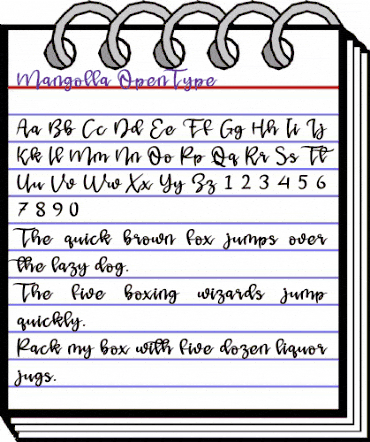 Mangolla OpenType
Aa Bb Cc Dd Ee Ff Gg Hh Ii Jj
Kk Ll Mm Nn Oo Pp Qq Rr Ss Tt
Uu Vv Ww Xx Yy Zz 1 2 3 4 5 6
7 8 9 0
The quick brown fox jumps over
the lazy dog.
The five boxing wizards jump
quickly.
Pack my box with five dozen liquor
jugs.